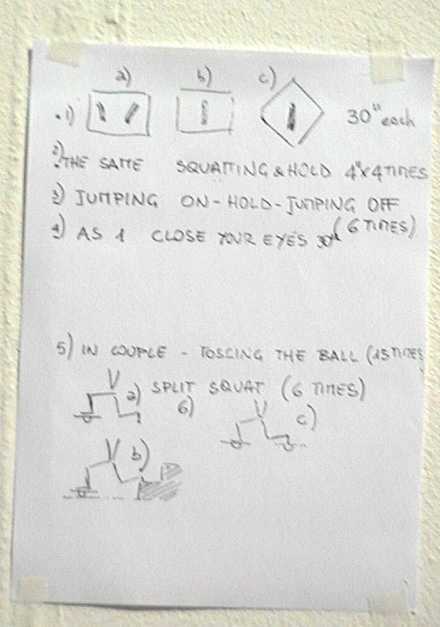 a) b) c)
1) 30" each
2) THE SAME SQUATTING & HOLD 4"x 4 TIMES
3) JUMPING ON - HOLD - JUMPING OFF
(6 TIMES)
4) AS 1 CLOSE YOUR EYES 30"
5) IN COUPLE - TOSSING THE BALL (15 TIMES
a) SPLIT SQUAT (6 TIMES)
6) c)
b)